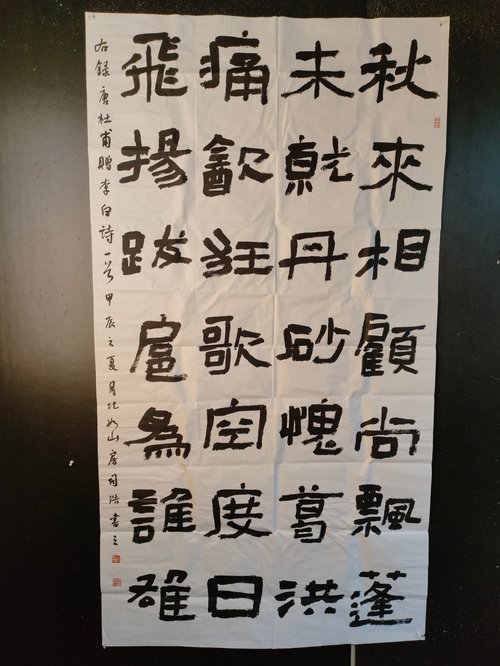 秋來相顧尚飄蓬
未就丹砂愧葛洪
痛㱃狂歌空度日
飛揚跋扈為誰雄
右錄唐杜甫贈李白詩一首甲辰之夏月山房書之